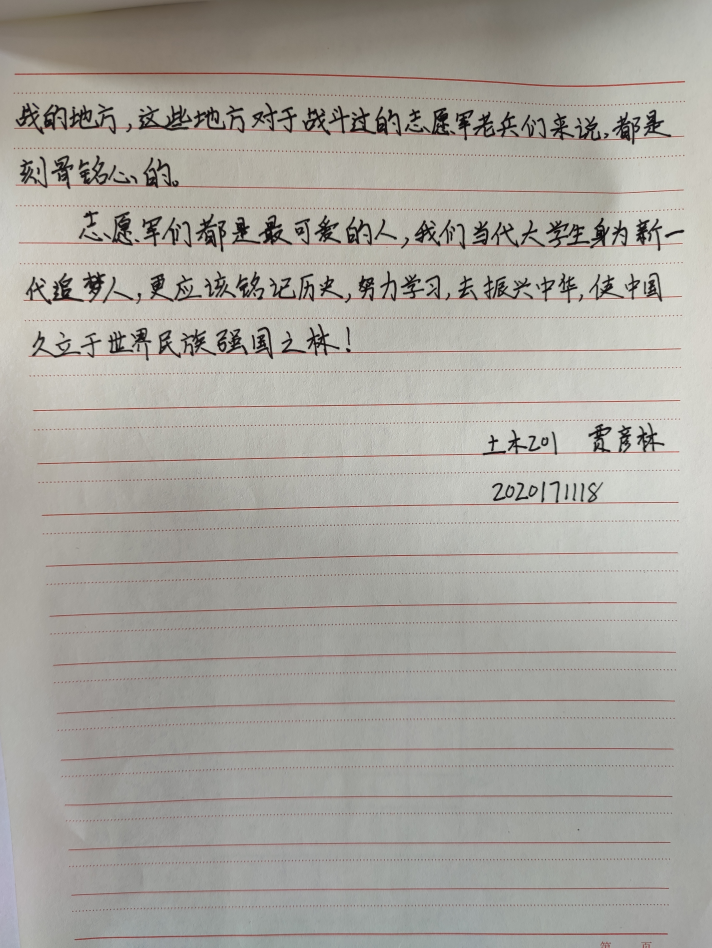 战的地方,这些地方对于战斗过的志愿军老兵们来说,都是
刻骨铭心的。
志愿军们都是最可爱的人,我们当代大学生身为新一
代追梦人,更应该铭记历史,努力学习,去振兴中华,使中国
久立于世界民族强国之林!
土木201 贾彦林
2020171118
第 页